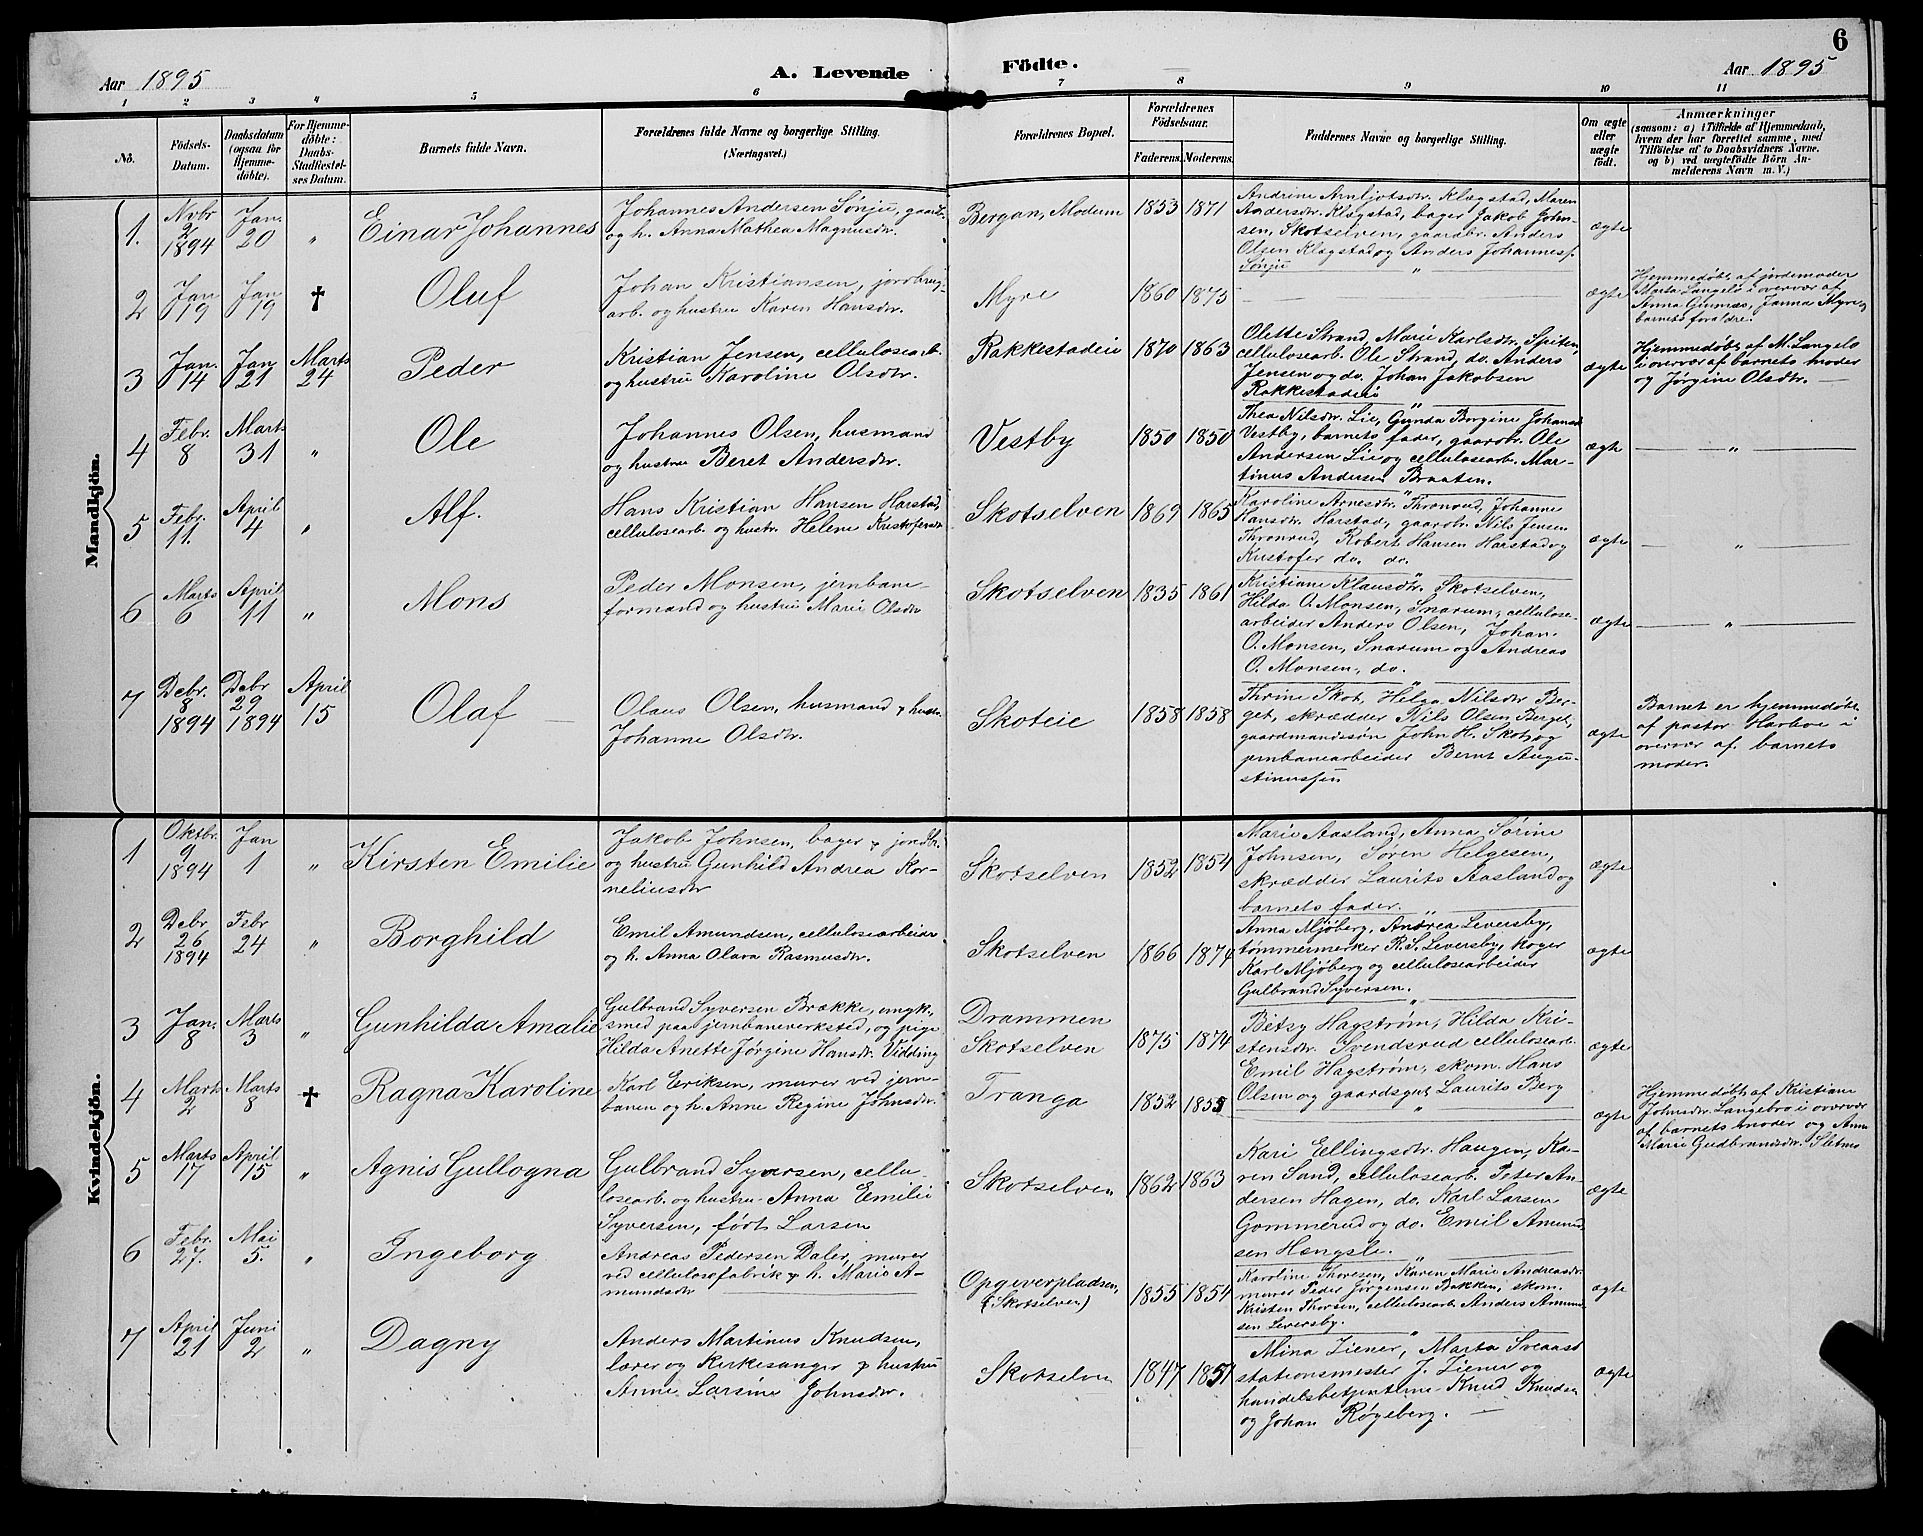 6
Aar 1895
A. Levende Födte.
Aar 1895
1 2 3 4 5 6 7 8 9 10 11
No.
Födsels-Datum.
Daabsdatum (ogsaa for Hjemme-döbte).
For Hjemme-döbte: Daabs-Stadfæstel-ses Datum.
Barnets fulde Navn.
Forældrenes fulde Navne og borgerlige Stilling.
(Næringsvei.)
Forældrenes Bopæl.
Forældrenes Födselsaar.
Faderens. Moderens.
Faddernes Navne og borgerlige Stilling.
Om ægte eller uægte födt.
Anmærkninger
(saasom: a) i Tilfælde af Hjemmedaab, hvem der har forrettet samme, med Tilföielse af to Daabsvidners Navne, og b) ved uægtefödte Börn An-melderens Navn m. V.)
Mandkjön.
1. Novbr 2 1894 Jan. 20 „ Einar Johannes
Johannes Andersen Sønju, gaardbr.
og h. Anna Mathea Magnusdr.
Bergan, Modum 1853 1871
Andrine Arnljotsdr. Klægstad, Maren
Andersdr. Klægstad, bager Jakob John-
sen, Skotselven, gaardbr. Anders
Olsen Klægstad og Anders Johanness.
Sønju
ægte
2 Jan 19 Jan 19 † Oluf
Johan Kristiansen, jordbrug-
arb. og hustru Karen Hansdr.
Myre 1860 1873 — „ —
ægte
Hjemmedøbt af jordemoder
Marta Langelo i overvær af
Anna Gunnæs, Janna Myre,
barnets forældre.
3 Jan. 14 Jan 21 Marts 24 Peder
Kristian Jensen, cellulosearb.
og hustru Karoline Olsdr.
Rakkestadeie 1870 1863
Olette Strand, Marie Karlsdr. Spiten,
cellulosearb. Ole Strand, do. Anders
Jensen og do. Johan Jakobsen
Rakkestadeie
ægte
Hjemmedøbt af M. Langelo
i overvær af barnets moder
og Jørgine Olsdr. —
4 Febr. 8 Marts 31 „ Ole
Johannes Olsen, husmand
og hustru Beret Andersdr.
Vestby 1850 1850
Thea Nilsdr. Lie, Gunda Borgine Johansd.
Vestby, barnets fader, gaardbr. Ole
Andersen Lie og cellulosearb. Mar-
tinus Andersen Braaten.
ægte — „ —
5 Febr. 11. April 4 „ Alf.
Hans Kristian Hansen Harstad,
cellulosearb. og hustr. Helene Kristofersdr
Skotselven 1869 1865
Karoline Arnesdr. Thronrud, Johanne
Hansdr. Harstad, gaardbr. Nils Jensen
Thronrud, Robert Hansen Harstad og
Kristofer do. do.
ægte — „ —
6 Marts 6 April 11 „ Mons
Peder Monsen, jernbane-
formand og hustru Marie Olsdr
Skotselven 1835 1861
Kristiane Klausdr. Skotselven,
Hilda O. Monsen, Snarum, cellulose-
arbeider Anders Olsen, Johan
O. Monsen, Snarum og Andreas
O. Monsen, do.
ægte — „ —
7 Debr. 8 1894 Debr 29 1894 April 15 Olaf —
Olaus Olsen, husmand & hustr.
Johanne Olsdr.
Skoteie 1858 1858
Thrine Skot, Helga Nilsdr Ber-
get, skrædder Nils Olsen Berget,
gaardmandssøn John H. Skot, og
jernbanearbeider Bernt Augu-
stinussøn
ægte
Barnet er hjemmedøbt
af pastor Harboe i
overvær af barnets
moder.
Kvindekjön.
1 Oktbr. 9 1894 Jan 1 „ Kirsten Emilie
Jakob Johnsen, bager & jordbr.
og hustru Gunhild Andrea Kor-
neliusdr
Skotselven 1852 1854
Marie Aasland, Anna Sørine
Johnsen, Søren Helgesen,
skrædder Laurits Aasland og
barnets fader.
ægte
2 Debr 26 1894 Febr 24 „ Borghild
Emil Amundsen, cellulosearbeider
og h. Anna Olava Rasmusdr.
Skotselven 1866 1874
Anna Mjøberg, Andrea Leversby,
tømmermerker R. S. Leversby, koger
Karl Mjøberg og cellulosearbeider
Gulbrand Syversen.
ægte
3 Jan. 8 Marts 3 „ Gunhilda Amalie
Gulbrand Syversen Brække, ungk.,
smed paa jernbaneverksted, og pige
Hilda Anette Jørgine Hansdr. Vidding
Drammen
Skotselven 1875 1874
Betsy Hagstrøm, Hilda Kri-
stensdr. Svendsrud cellulosearb.
Emil Hagstrøm, skom. Hans
Olsen og gaardsgut Laurits Berg
ægte
4 Marts 2 Marts 8 † Ragna Karoline
Karl Eriksen, murer ved jern-
banen og h. Anne Regine Johnsdr.
Tranga 1852 1855 „
ægte
Hjemmedøbt af Kristiane
Johnsdr. Langebro i overvær
af barnets moder og Anne
Marie Gudbrandsdr. Sletmo
5 Marts 17 April 15 „ Agnis Gullogna
Gulbrand Syversen, cellu-
losearb. og hustru Anna Emilie
Syversen, født Larsen
Skotselven 1862 1863
Kari Ellingsdr. Haugen, Ka-
ren Sand, cellulosearb. Peter An-
dersen Hagen, do. Karl Larsen
Gommerud og do. Emil Amund-
sen Hængsle.
ægte
6 Febr. 27. Mai 5. „ Ingeborg
Andreas Pedersen Daler, murer
ved cellulosefabrik & h. Marie A-
mundsdr
Opgeverpladsen,
(Skotselven) 1855 1854
Karoline Thoresen, Karen Marie Andreasdr.
murer Peder Jørgensen Bakken, skom.
Kristen Thorsen, cellulosearb. Anders Amund-
sen Leversby.
ægte
7 April 21 Juni 2 „ Dagny
Anders Martinus Knudsen,
lærer og kirkesanger & hustru
Anne Larsine Johnsdr.
Skotselven 1847 1851
Mina Ziener, Marta Sveaass
stationsmester J. Ziener og
handelsbetjenterne Knud Knudsen
og Johan Røgeberg. —
ægte